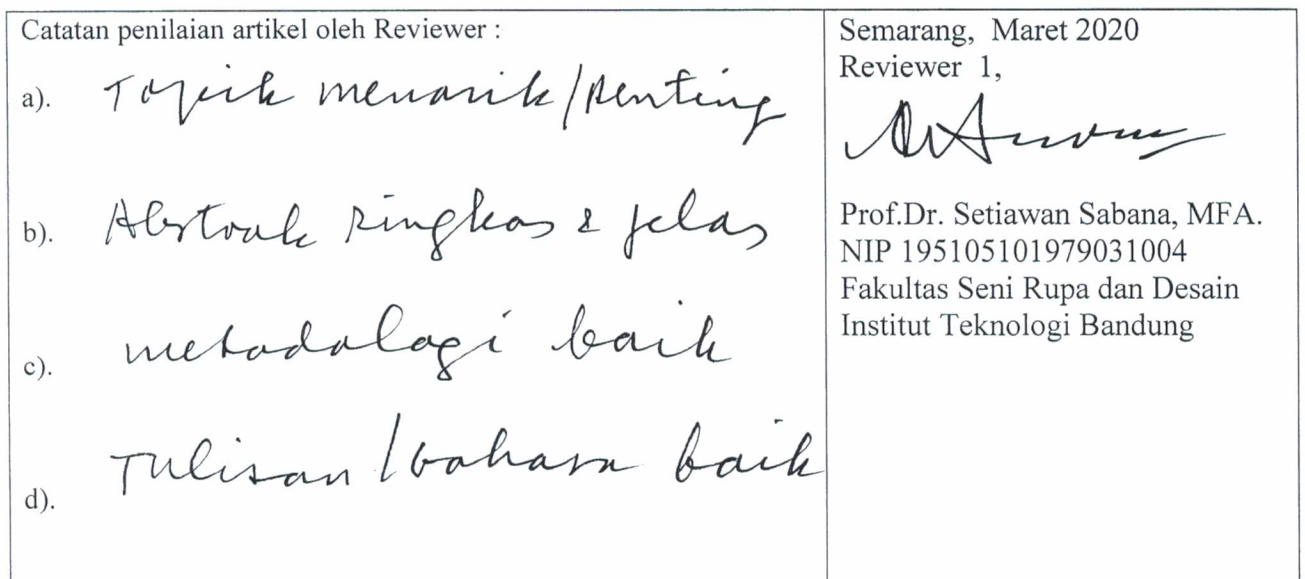 Catatan penilaian artikel oleh Reviewer :
a). Topik menarik/penting
b). Abstrak ringkas & jelas
c). metodologi baik
d). Tulisan/bahasa baik
Semarang, Maret 2020
Reviewer 1,
Prof.Dr. Setiawan Sabana, MFA.
NIP 195105101979031004
Fakultas Seni Rupa dan Desain
Institut Teknologi Bandung